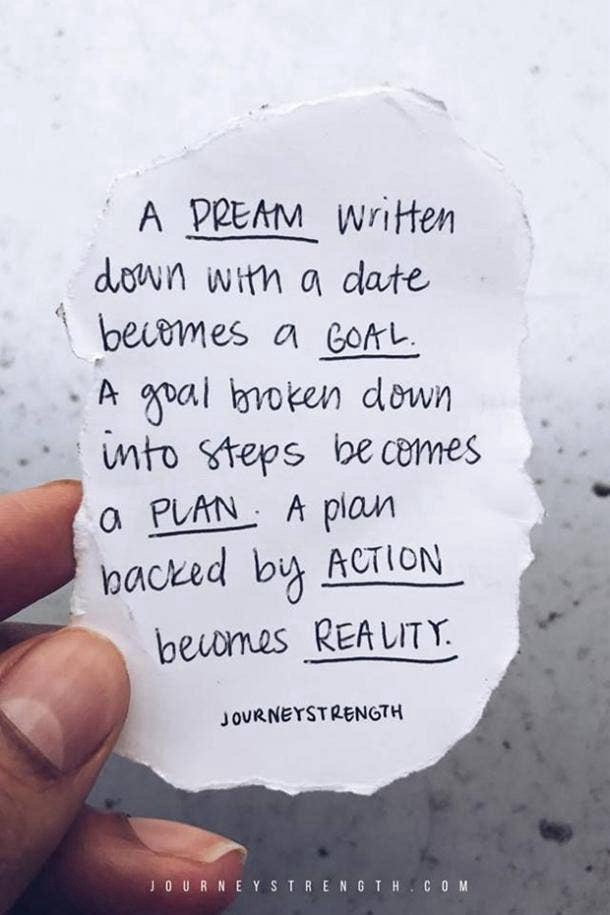 A DREAM written
down with a date
becomes a GOAL.
A goal broken down
into steps becomes
a PLAN. A plan
backed by ACTION
becomes REALITY.
JOURNEYSTRENGTH
JOURNEYSTRENGTH.COM